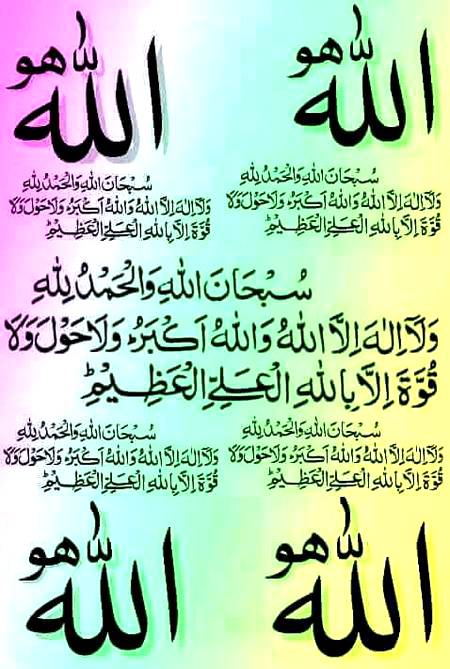 هو
الله
هو
الله
سُبْحَانَ اللهِ وَالْحَمْدُ لِلهِ
وَلَآ اِلٰهَ اِلَّا اللهُ وَاللهُ اَكْبَرُ وَلَاحَوْلَ وَلَا
قُوَّةَ اِلَّا بِاللهِ الْعَلِيِّ الْعَظِيْمِ
سُبْحَانَ اللهِ وَالْحَمْدُ لِلهِ
وَلَآ اِلٰهَ اِلَّا اللهُ وَاللهُ اَكْبَرُ وَلَاحَوْلَ وَلَا
قُوَّةَ اِلَّا بِاللهِ الْعَلِيِّ الْعَظِيْمِ
سُبْحَانَ اللهِ وَالْحَمْدُ لِلهِ
وَلَآ اِلٰهَ اِلَّا اللهُ وَاللهُ اَكْبَرُ وَلَاحَوْلَ وَلَا
قُوَّةَ اِلَّا بِاللهِ الْعَلِيِّ الْعَظِيْمِ
سُبْحَانَ اللهِ وَالْحَمْدُ لِلهِ
وَلَآ اِلٰهَ اِلَّا اللهُ وَاللهُ اَكْبَرُ وَلَاحَوْلَ وَلَا
قُوَّةَ اِلَّا بِاللهِ الْعَلِيِّ الْعَظِيْمِ
سُبْحَانَ اللهِ وَالْحَمْدُ لِلهِ
وَلَآ اِلٰهَ اِلَّا اللهُ وَاللهُ اَكْبَرُ وَلَاحَوْلَ وَلَا
قُوَّةَ اِلَّا بِاللهِ الْعَلِيِّ الْعَظِيْمِ
هو
الله
هو
الله